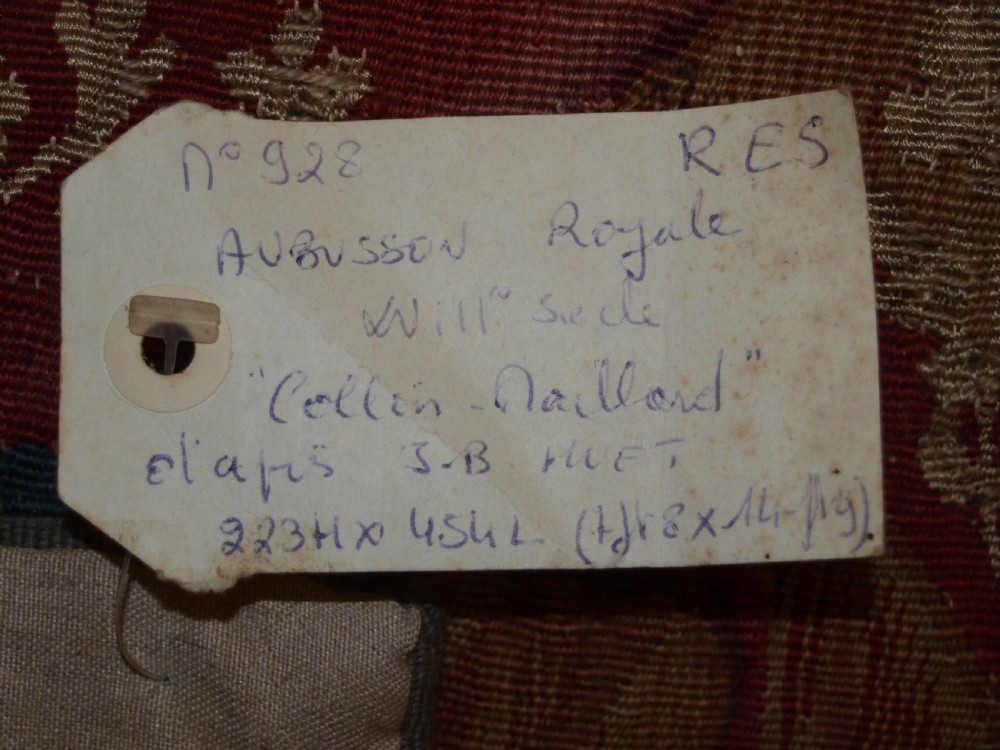 N° 928 RES
AUBUSSON Royale
XVIII° Siecle
"Collin-Maillard"
d'après J-B HUET
223H x 454 L